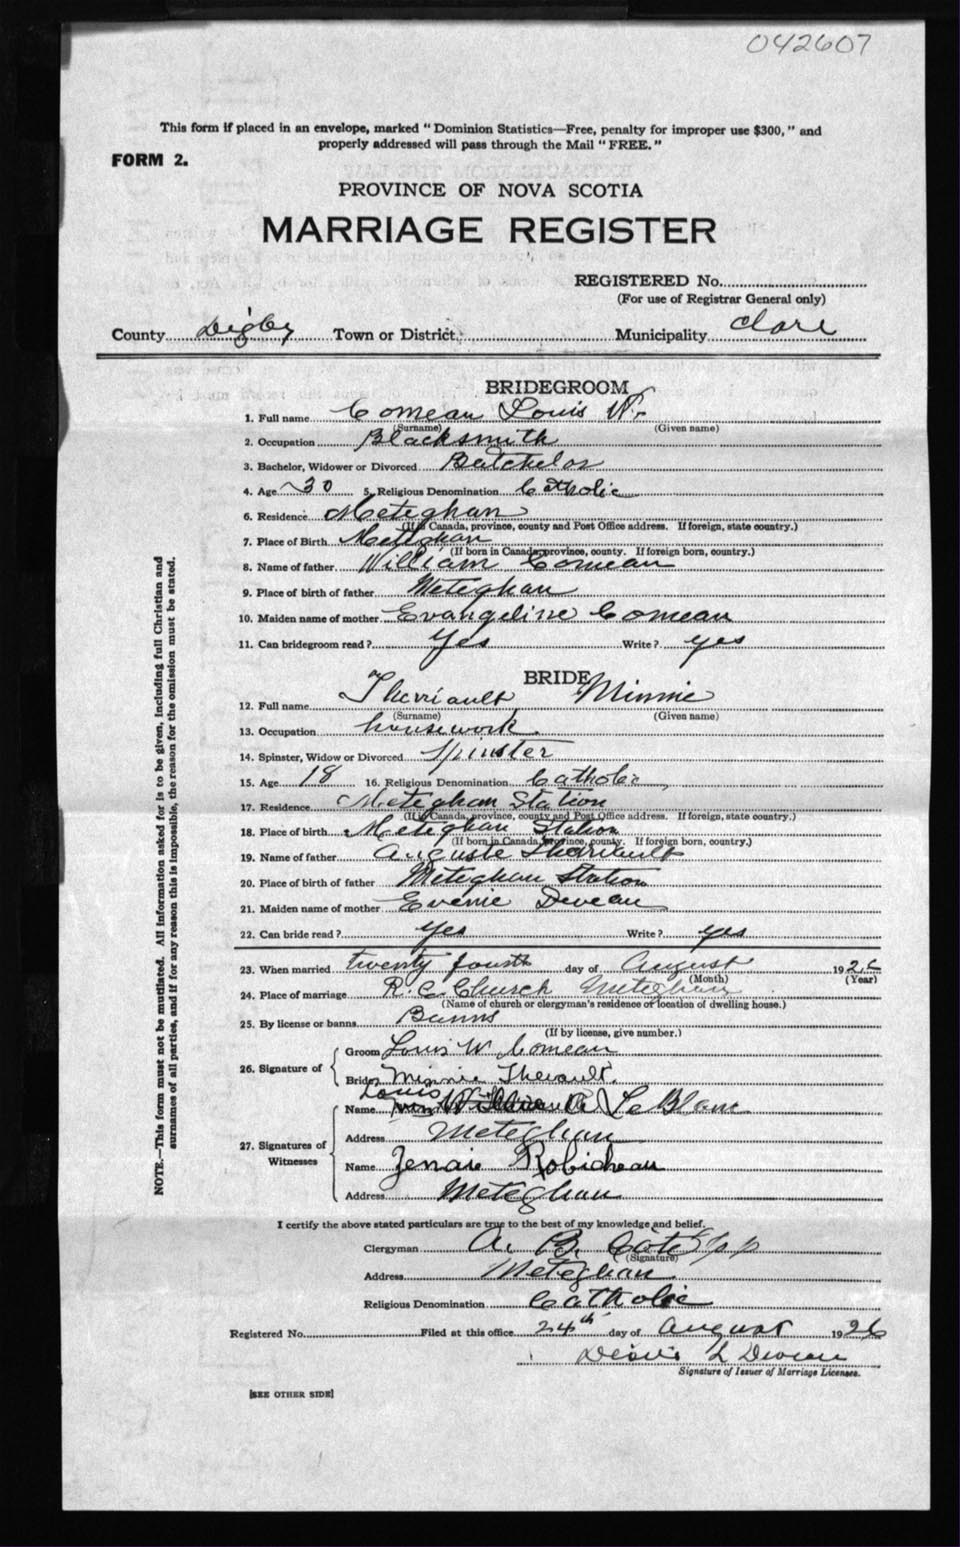 042607
This form if placed in an envelope, marked "Dominion Statistics—Free, penalty for improper use $300," and
properly addressed will pass through the Mail "FREE."
FORM 2.
PROVINCE OF NOVA SCOTIA
MARRIAGE REGISTER
REGISTERED No.
(For use of Registrar General only)
County Digby Town or District Municipality Clare
BRIDEGROOM
1. Full name Comeau Louis W.
(Surname) (Given name)
2. Occupation Blacksmith
3. Bachelor, Widower or Divorced Batchelor
4. Age 30 5. Religious Denomination Catholic
6. Residence Meteghan
(If in Canada, province, county and Post Office address. If foreign, state country.)
7. Place of Birth Meteghan
(If born in Canada, province, county. If foreign born, country.)
8. Name of father William Comeau
9. Place of birth of father Meteghan
10. Maiden name of mother Evangeline Comeau
11. Can bridegroom read? Yes Write? yes
BRIDE
12. Full name Therriault Minnie
(Surname) (Given name)
13. Occupation housework
14. Spinster, Widow or Divorced Spinster
15. Age 18 16. Religious Denomination Catholic
17. Residence Meteghan Station
(If in Canada, province, county and Post Office address. If foreign, state country.)
18. Place of birth Meteghan Station
(If born in Canada, province, county. If foreign born, country.)
19. Name of father Auguste Theriault
20. Place of birth of father Meteghan Station
21. Maiden name of mother Evenie Deveau
22. Can bride read? yes Write? yes
23. When married twenty fourth day of August 1926
(Month) (Year)
24. Place of marriage R. C. Church Meteghan
(Name of church or clergyman's residence or location of dwelling house.)
25. By license or banns Banns
(If by license, give number.)
26. Signature of Groom Louis W Comeau
Bride Minnie Theriault
27. Signatures of Witnesses
Name Louis A. LeBlanc
Address Meteghan
Name Jennie Robicheau
Address Meteghan
I certify the above stated particulars are true to the best of my knowledge and belief.
Clergyman A. B. Coté pp
(Signature)
Address Meteghan
Religious Denomination Catholic
Registered No. Filed at this office 24th day of August 1926
L Deveau
Signature of Issuer of Marriage Licenses.
[SEE OTHER SIDE]
NOTE.—This form must not be mutilated. All information asked for is to be given, including full Christian and
surnames of all parties, and if for any reason this is impossible, the reason for the omission must be stated.